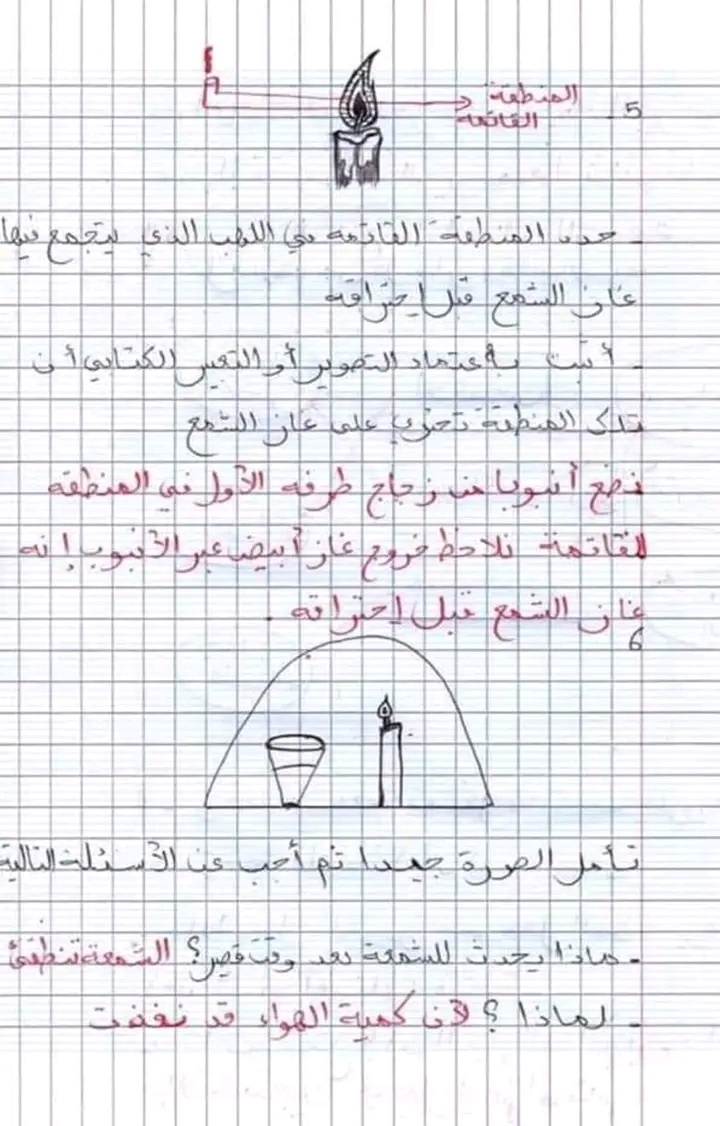 5 - المنطقة
القاتمة
- حدد المنطقة القاتمه في اللهب الذي يتجمع فيها
غاز الشمع قبل إحتراقه
- أثبت بإعتماد التصوير أو التعبير الكتابي أن
تلك المنطقة تحتوي على غاز الشمع
نضع أنبوبا من زجاج طرفه الأول في المنطقه
القاتمة نلاحظ خروج غاز أبيض عبر الأنبوب إنه
غاز الشمع قبل إحتراقه .
6
تأمل الصورة جيدا ثم أجب عن الأسئلة التالية
- ماذا يحدث للشمعة بعد وقت قصير؟ الشمعة تنطفئ
- لماذا ؟ لأن كمية الهواء قد نفذت